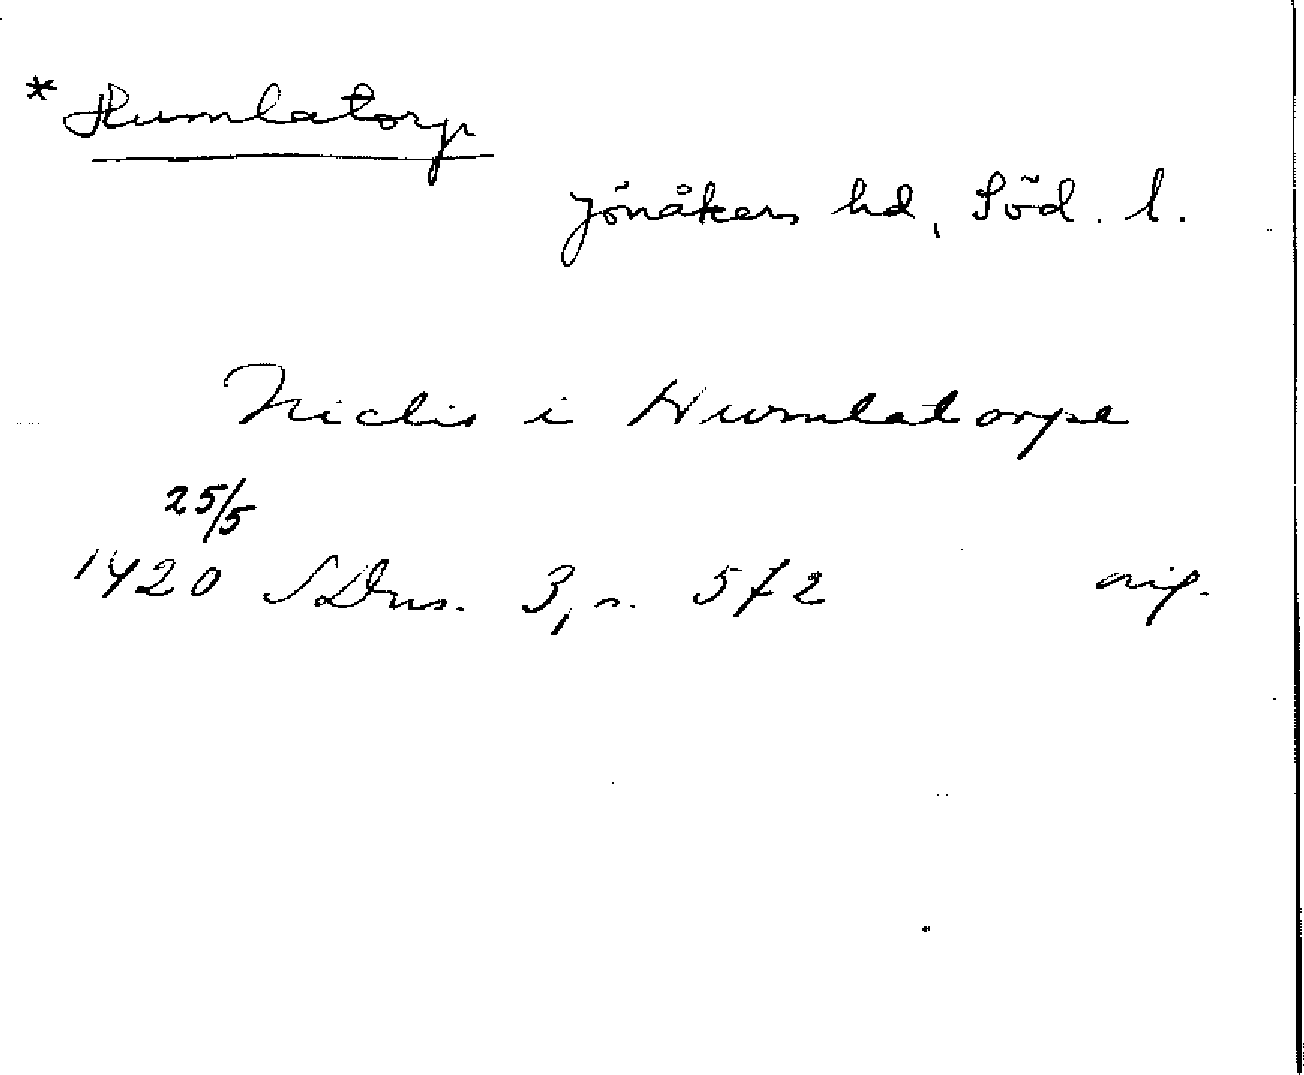 * Humlatorp
Jönåkers hd, Söd. l.
Niclis i Humlatorpe
25/5
1420 SDns. 3, s. 572 orig.